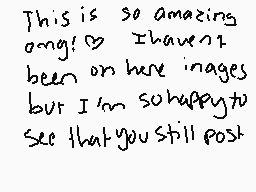 This is so amazing
omg! ♡ I havent
been on here inages
but I'm so happy to
see that you still post